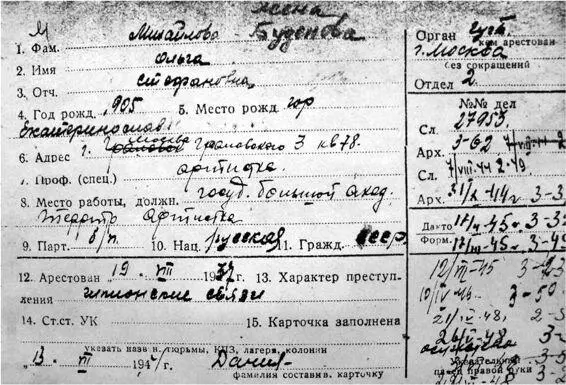 жена
Михайлова Буденова
1. Фам.
Ольга
2. Имя
Стефановна
3. Отч.
4. Год рожд. 905 5. Место рожд. гор
Екатеринослав
6. Адрес г. Москва Грановского 3 кв 78.
7. Проф. (спец.) артистка.
8. Место работы, должн. госуд. большой акад.
театр артистка
9. Парт. б/п 10. Нац. русская 11. Гражд. СССР
12. Арестован „19 VIII 1937 г. 13. Характер преступ-
ления шпионские связи
14. Ст.ст. УК 15. Карточка заполнена
указать назв и. тюрьмы, КПЗ, лагеря, колонии
„13. VII 194 г.
фамилия составив. карточку
Орган ГУГБ
кем арестован
г. Москва
без сокращений
Отдел 2.
№№ дел
Сл. 27953
Арх. 3-62
Сл. VIII-44 2-49
Арх. 3-3
Дакто 45 3-3
Форм. 45 3-4
12/VII-45
10/IV-46. 3-50
21/IV-48, 2-5
48
Указательный
палец правой руки